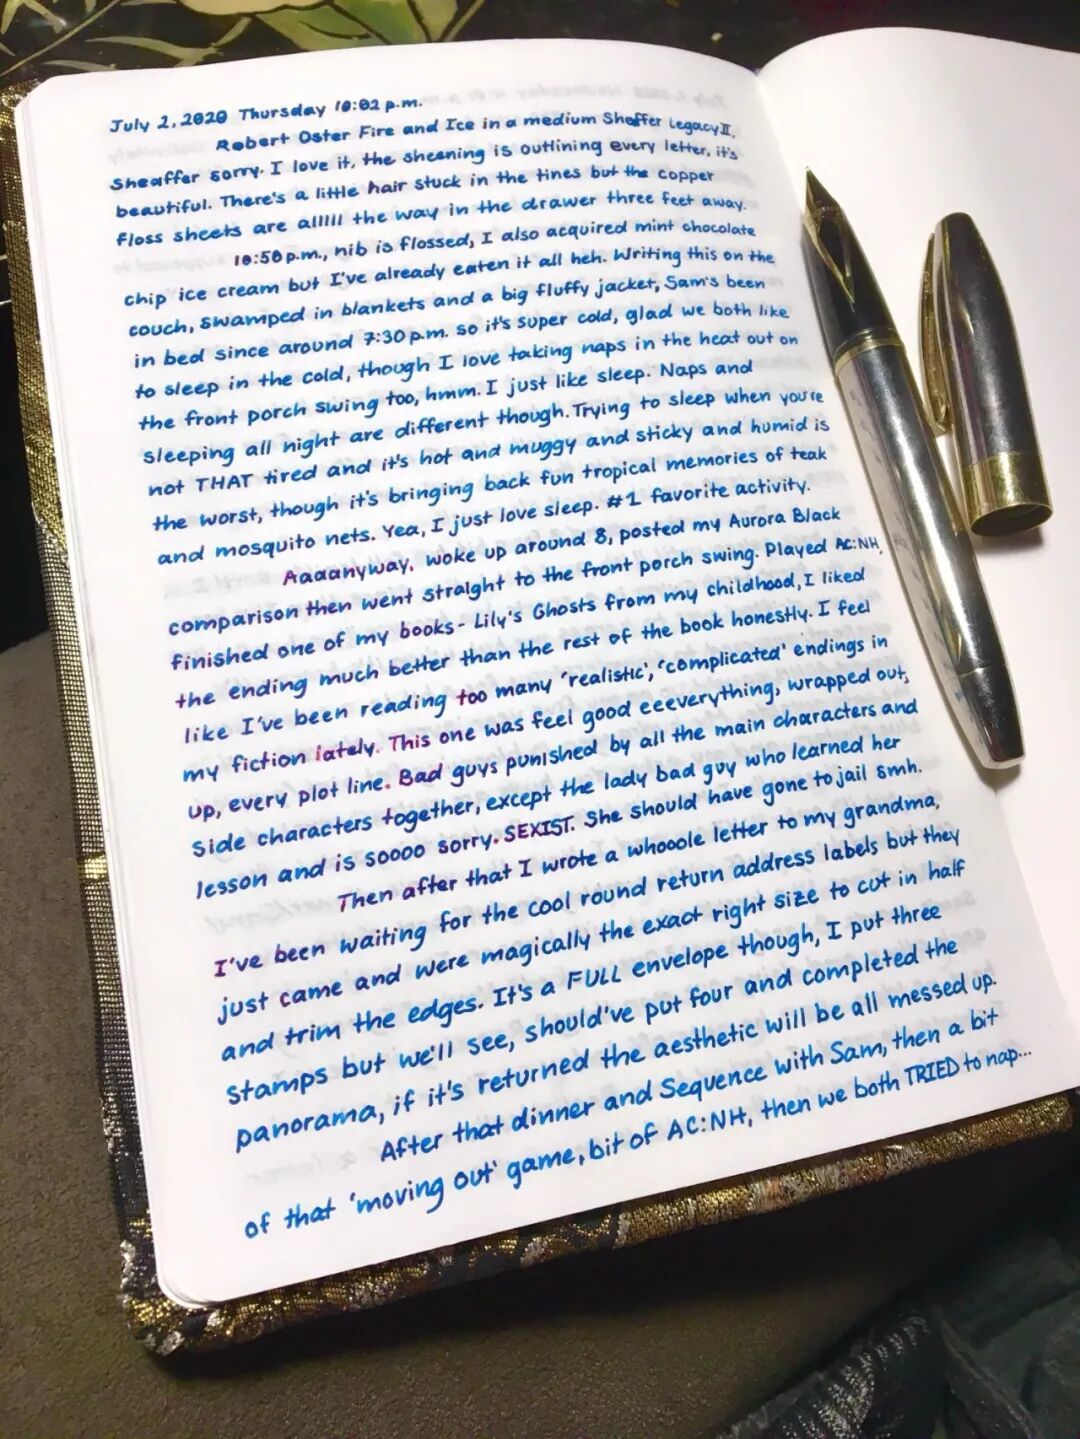 July 2, 2020 Thursday 10:02 p.m.
Robert Oster Fire and Ice in a medium Sheffer Legacy II,
Sheaffer sorry. I love it, the sheening is outlining every letter, it's
beautiful. There's a little hair stuck in the tines but the copper
floss sheets are alllll the way in the drawer three feet away.
10:50 p.m., nib is flossed, I also acquired mint chocolate
chip ice cream but I've already eaten it all heh. Writing this on the
couch, swamped in blankets and a big fluffy jacket, Sam's been
in bed since around 7:30 p.m. so it's super cold, glad we both like
to sleep in the cold, though I love taking naps in the heat out on
the front porch swing too, hmm. I just like sleep. Naps and
sleeping all night are different though. Trying to sleep when you're
not THAT tired and it's hot and muggy and sticky and humid is
the worst, though it's bringing back fun tropical memories of teak
and mosquito nets. Yea, I just love sleep. #1 favorite activity.
Aaaanyway, woke up around 8, posted my Aurora Black
comparison then went straight to the front porch swing. Played AC:NH,
finished one of my books - Lily's Ghosts from my childhood, I liked
the ending much better than the rest of the book honestly. I feel
like I've been reading too many 'realistic', 'complicated' endings in
my fiction lately. This one was feel good eeeverything, wrapped out,
up, every plot line. Bad guys punished by all the main characters and
side characters together, except the lady bad guy who learned her
lesson and is soooo sorry. SEXIST. She should have gone to jail smh.
Then after that I wrote a whooole letter to my grandma,
I've been waiting for the cool round return address labels but they
just came and were magically the exact right size to cut in half
and trim the edges. It's a FULL envelope though, I put three
stamps but we'll see, should've put four and completed the
panorama, if it's returned the aesthetic will be all messed up.
After that dinner and Sequence with Sam, then a bit
of that 'moving out' game, bit of AC:NH, then we both TRIED to nap...